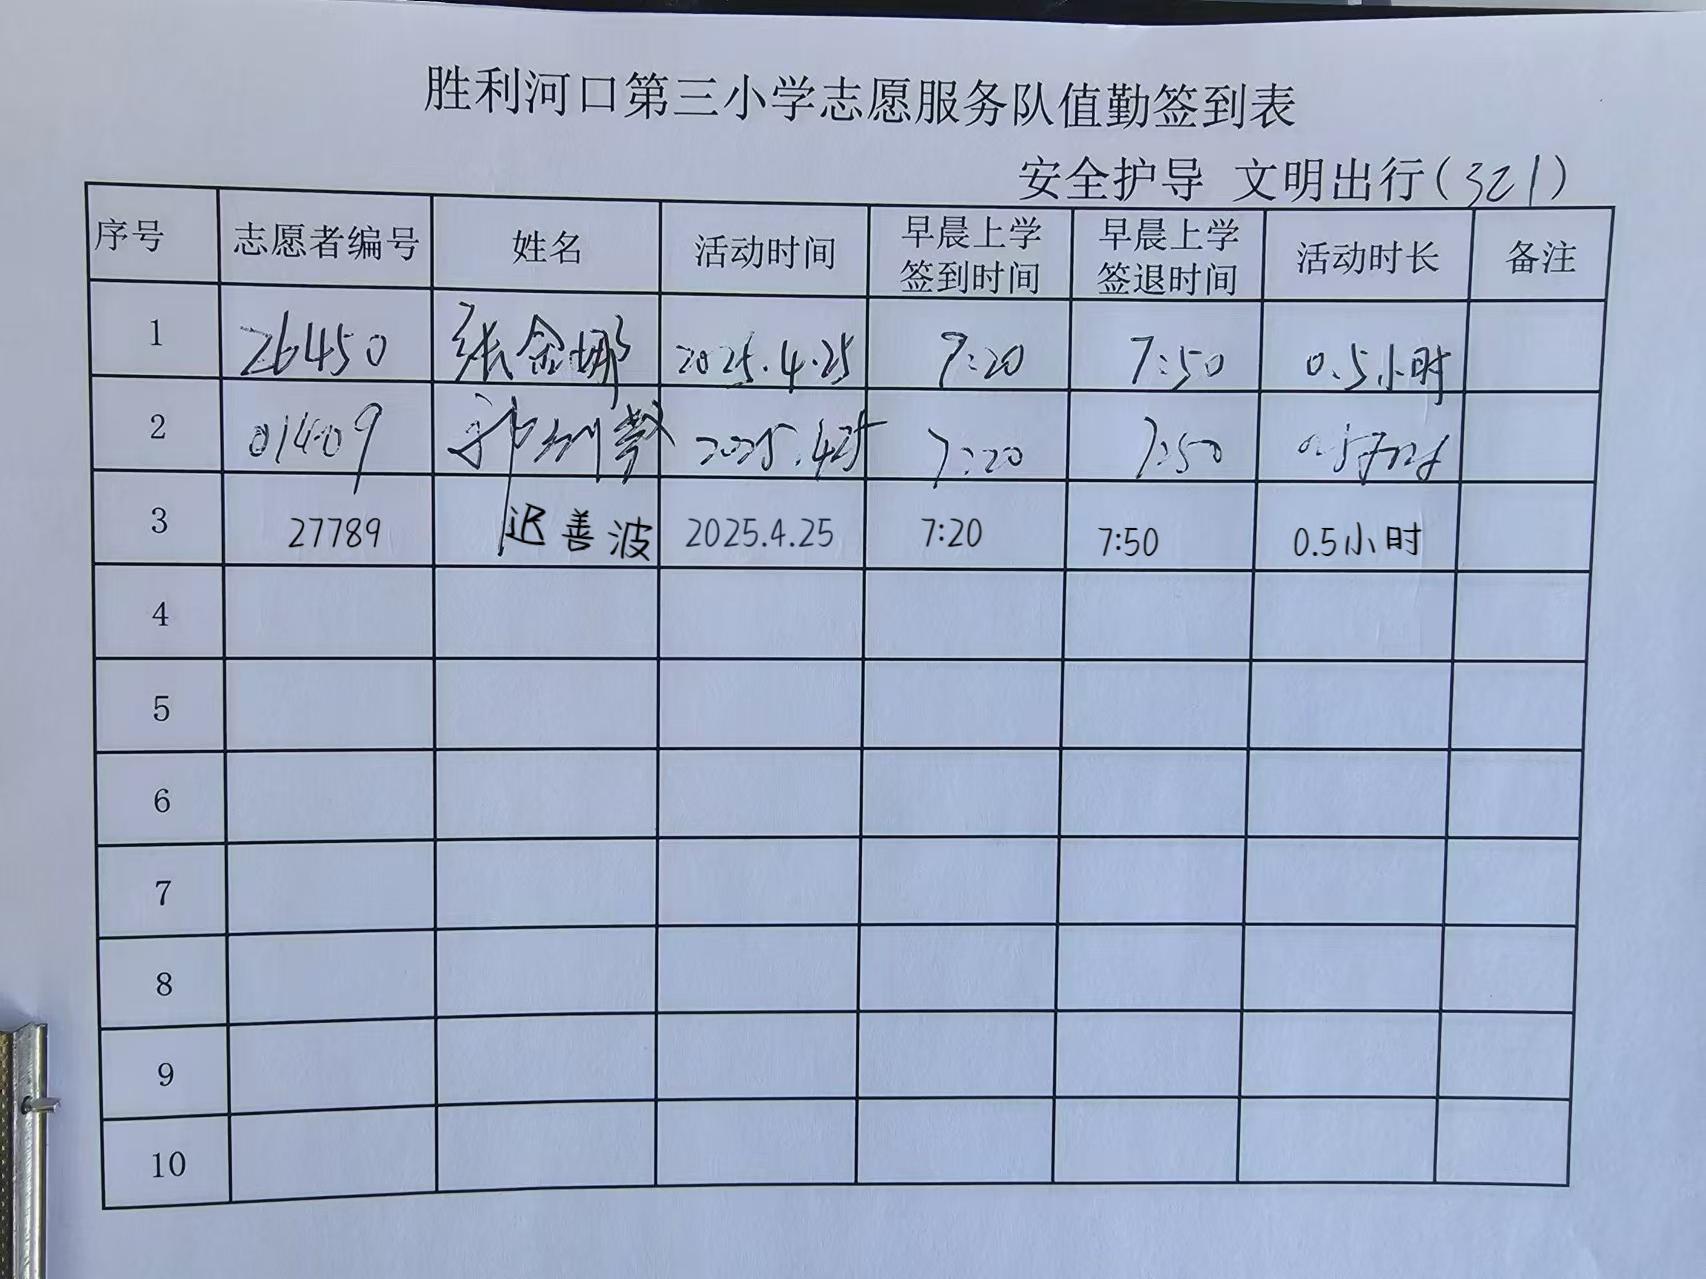 胜利河口第三小学志愿服务队值勤签到表
安全护导 文明出行(321)
序号 志愿者编号 姓名 活动时间 早晨上学签到时间 早晨上学签退时间 活动时长 备注
1 26450 张金娜 2025.4.25 7:20 7:50 0.5小时
2 01409 2025.4.25 7:20 7:50 0.5小时
3 27789 迟善波 2025.4.25 7:20 7:50 0.5小时
4
5
6
7
8
9
10